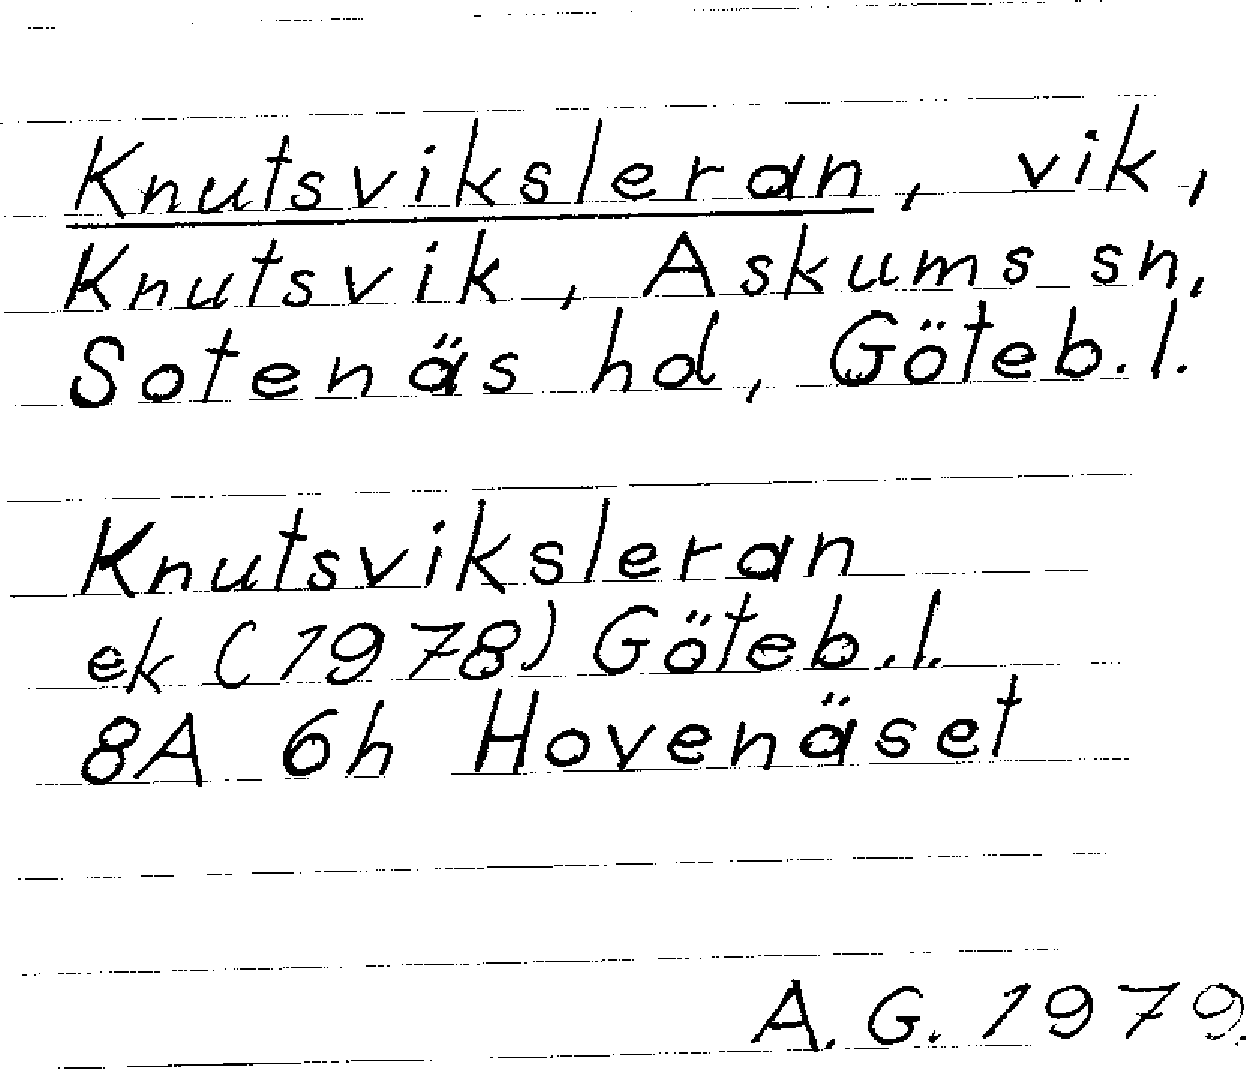 Knutsviksleran, vik,
Knutsvik, Askums sn,
Sotenäs hd, Göteb.l.
Knutsviksleran
ek (1978) Göteb.l.
8A 6h Hovenäset
A.G. 1979.